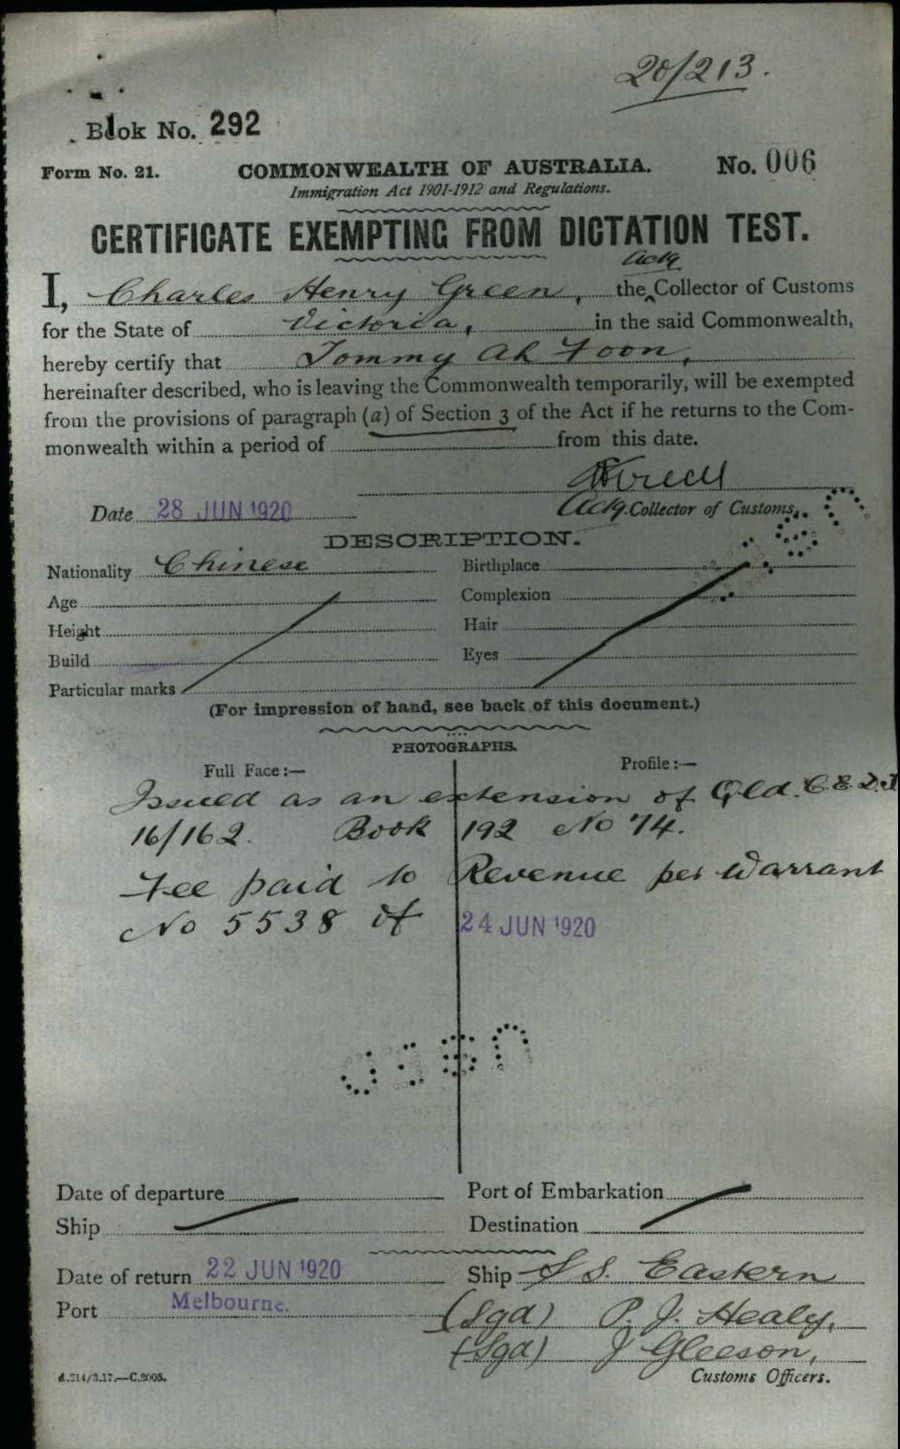 20/213.
Book No. 292
Form No. 21. COMMONWEALTH OF AUSTRALIA. No. 006
Immigration Act 1901-1912 and Regulations.
CERTIFICATE EXEMPTING FROM DICTATION TEST.
I, Charles Henry Green, the Actg Collector of Customs
for the State of Victoria, in the said Commonwealth,
hereby certify that Tommy Ah Foon,
hereinafter described, who is leaving the Commonwealth temporarily, will be exempted
from the provisions of paragraph (a) of Section 3 of the Act if he returns to the Com-
monwealth within a period of from this date.
Date 28 JUN 1920 Actg. Collector of Customs.
DESCRIPTION.
Nationality Chinese Birthplace
Age Complexion
Height Hair
Build Eyes
Particular marks
(For impression of hand, see back of this document.)
PHOTOGRAPHS.
Full Face:— Profile:—
Issued as an extension of Qld. C.E.D.T
16/162. Book 192 No 74.
Fee paid to Revenue per Warrant
No 5538 of 24 JUN 1920
USED
Date of departure Port of Embarkation
Ship Destination
Date of return 22 JUN 1920 Ship S S. Eastern
Port Melbourne. (Sgd) P. J. Healy,
(Sgd) J Gleeson,
Customs Officers.